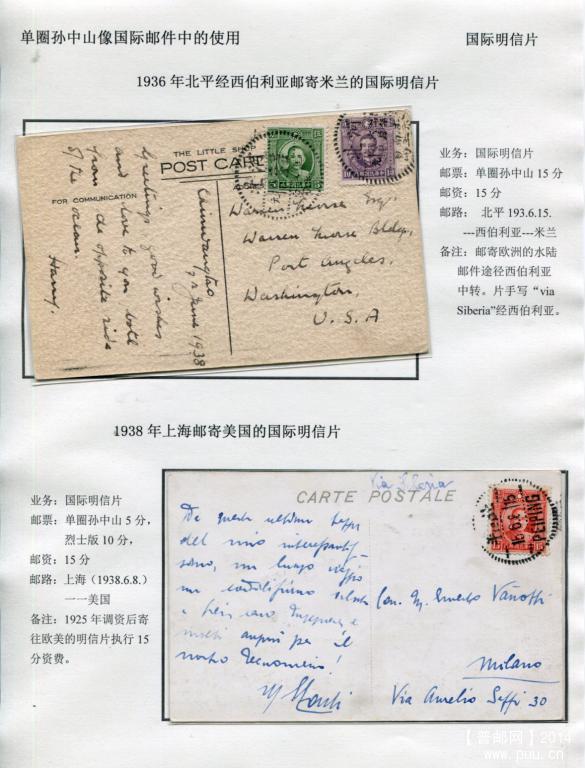 单圈孙中山像国际邮件中的使用
国际明信片
1936 年北平经西伯利亚邮寄米兰的国际明信片
THE LITTLE
POST CARD
FOR COMMUNICATION
Greetings good wishes
and love to you both
from de opposite side
of the ocean.
Harry.
Chinwangtao
June 1938
Warren Morse Esq.
Warren Morse Bldg,
Port Angeles,
Washington,
U.S.A
业务：国际明信片
邮票：单圈孙中山 15 分
邮资：15 分
邮路： 北平 193.6.15.
---西伯利亚---米兰
备注：邮寄欧洲的水陆
邮件途径西伯利亚
中转。片手写“via
Siberia”经西伯利亚。
1938 年上海邮寄美国的国际明信片
业务：国际明信片
邮票：单圈孙中山 5 分，
烈士版 10 分，
邮资：15 分
邮路：上海（1938.6.8.）
一一美国
备注：1925 年调资后寄
往欧美的明信片执行 15
分资费。
Via Siberia
CARTE POSTALE
PEIPING
Da questa ultima tappa
del mio
un lungo
e
molti auguri per il
nostro
Ernesto Vanotti
Milano
Via Aurelio Saffi 30
【普邮网】2014
www.puu.cn